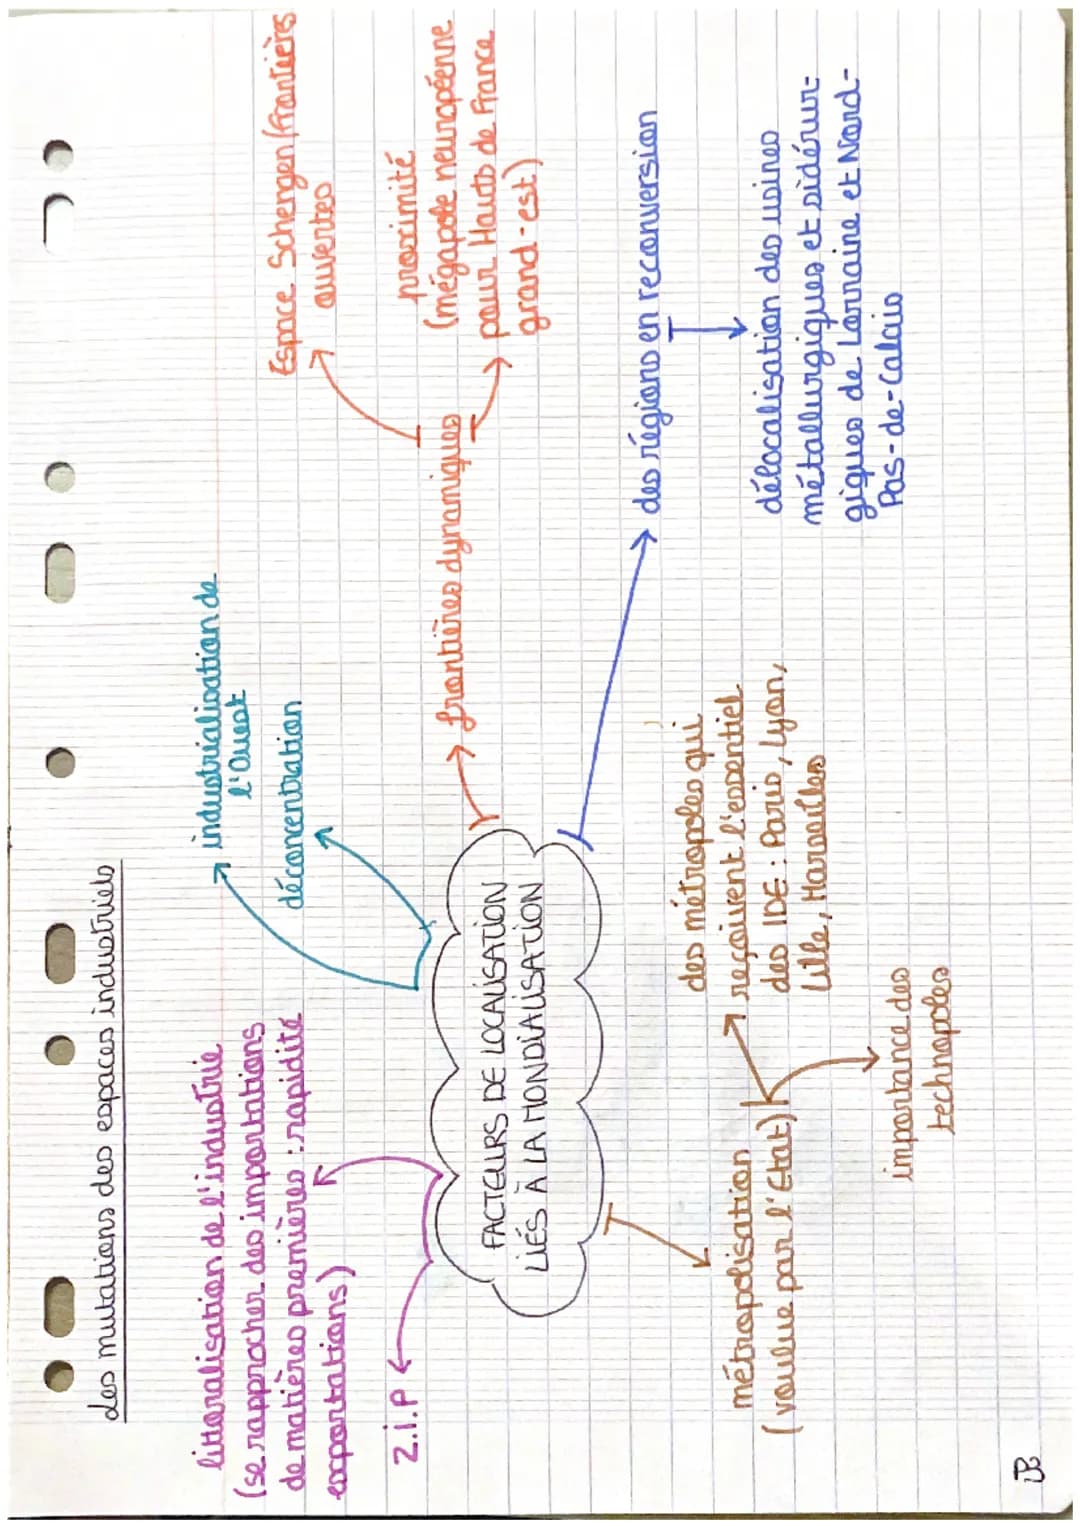 des mutations des espaces industriels
littoralisation de l'industrie
(se rapprocher des importations
de matières premières : rapidité
exportations)
Z.i.P
industrialisation de
l'Ouest
déconcentration
frontières dynamiques
Espace Schengen (frontières
ouvertes
proximité
(mégapole européenne
pour Hauts de France
grand-est)
FACTEURS DE LOCALISATION
LIÉS À LA MONDIALISATION
des régions en reconversion
délocalisation des usines
métallurgiques et sidérur-
giques de Lorraine et Nord-
Pas-de-Calais
métropolisation
(voulue par l'Etat)
des métropoles qui
reçoivent l'essentiel
des IDE : Paris, Lyon,
Lille, Marseilles
importance des
technopoles